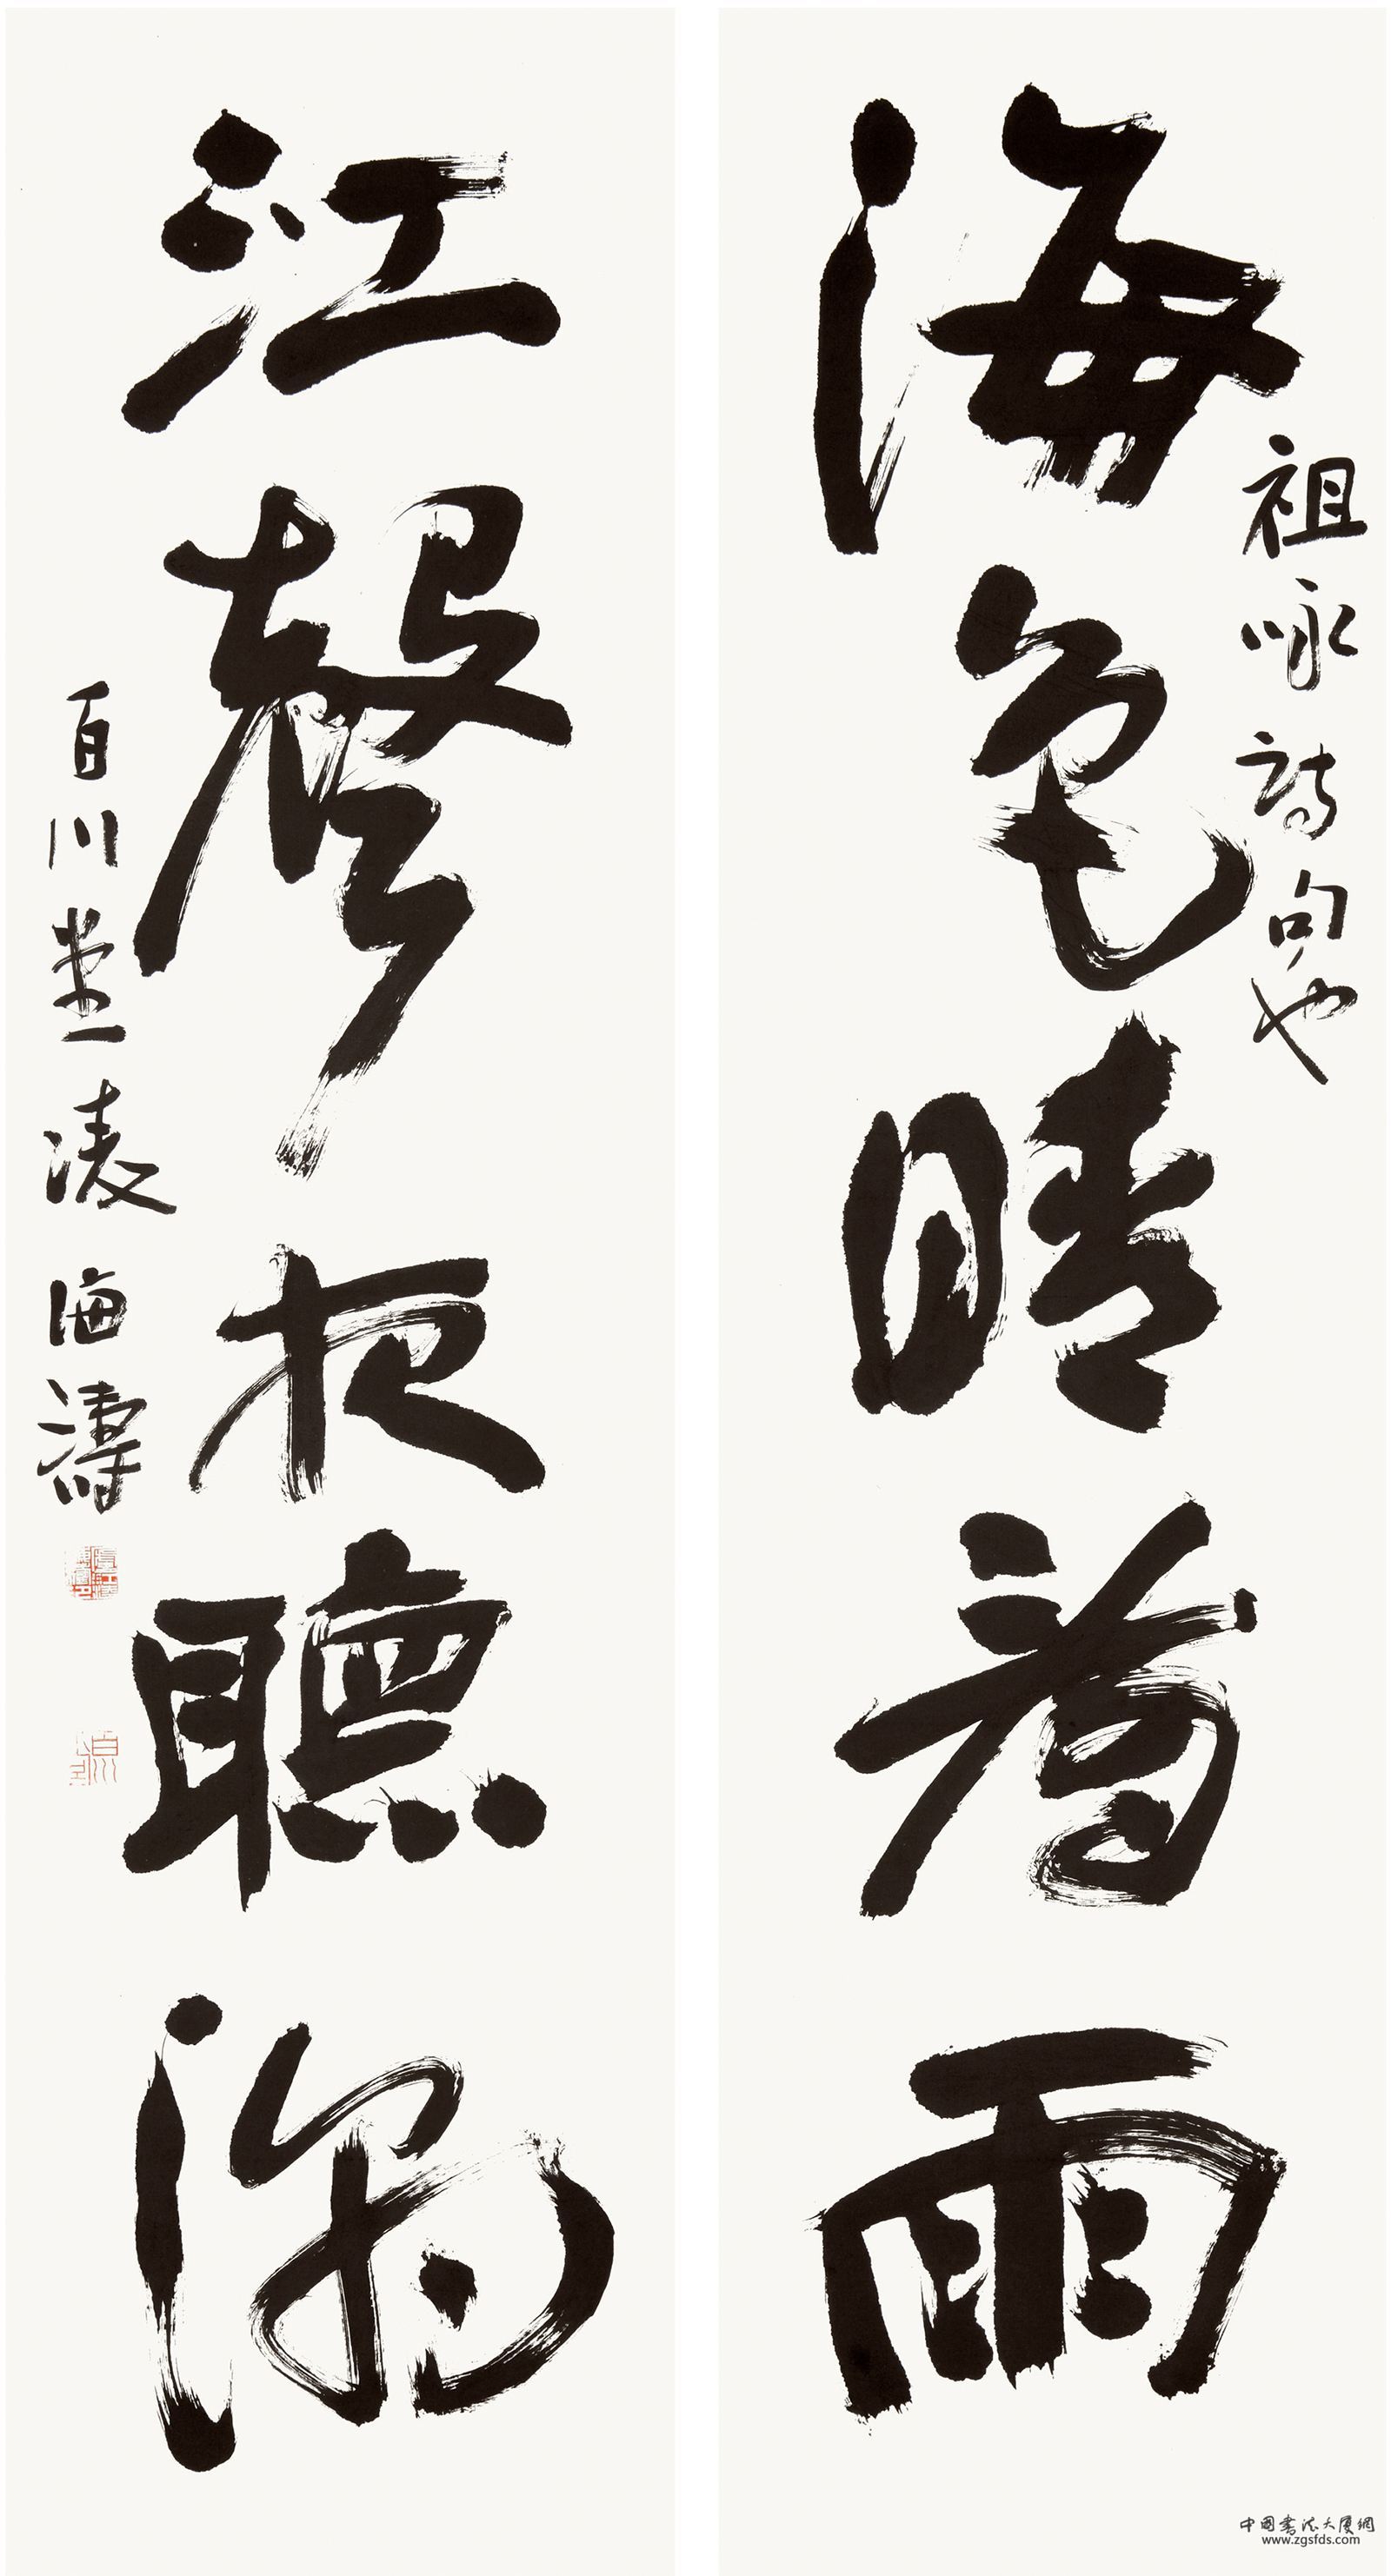 海色晴看雨
祖咏詩句也
江聲夜聽潮
百川堂 海濤
中国书法大厦網
www.zgsfds.com